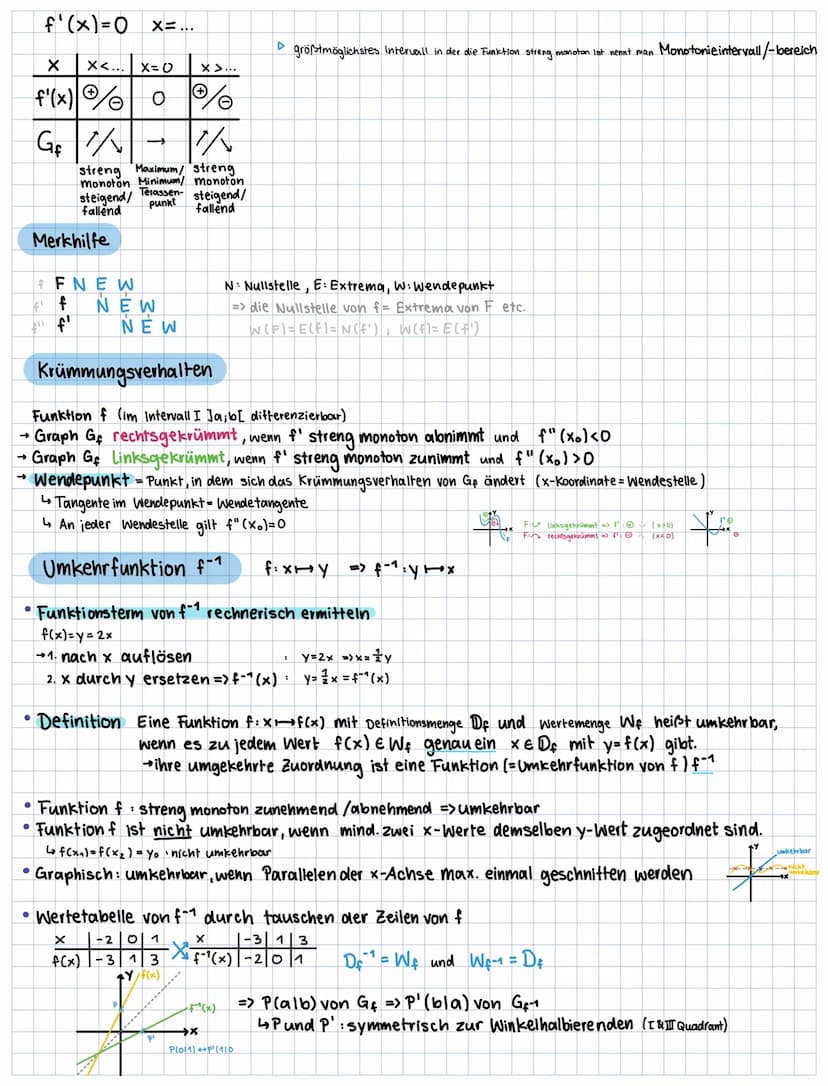 f'(x)=0 x=...
▷ größtmöglichstes Intervall in der die Funktion streng monoton ist nennt man Monotonieintervall/-bereich
x | x<... | x=0 | x>...
f'(x) | ⊕/⊖ | 0 | ⊕/⊖
Gf | ↗/↘ | → | ↗/↘
streng monoton steigend/fallend | Maximum/Minimum/Terassenpunkt | streng monoton steigend/fallend
Merkhilfe
f F N E W
f' f N E W
f'' f' N E W
N: Nullstelle, E: Extrema, W: Wendepunkt
=> die Nullstelle von f = Extrema von F etc.
W(F)=E(f)=N(f'), W(f)=E(f')
Krümmungsverhalten
Funktion f (im Intervall I ]a;b[ differenzierbar)
→ Graph Gf rechtsgekrümmt, wenn f' streng monoton abnimmt und f''(x₀)<0
→ Graph Gf Linksgekrümmt, wenn f' streng monoton zunimmt und f''(x₀)>0
→ Wendepunkt = Punkt, in dem sich das Krümmungsverhalten von Gf ändert (x-Koordinate = Wendestelle)
↳ Tangente im Wendepunkt = Wendetangente
↳ An jeder Wendestelle gilt f''(x₀)=0
linksgekrümmt => f': ⊕ (x>0)
rechtsgekrümmt => f': ⊖ (x<0)
Umkehrfunktion f⁻¹ f: x↦y => f⁻¹: y↦x
• Funktionsterm von f⁻¹ rechnerisch ermitteln
f(x)=y=2x
→1. nach x auflösen : y=2x => x=½y
2. x durch y ersetzen => f⁻¹(x) : y=½x = f⁻¹(x)
• Definition Eine Funktion f: x↦f(x) mit Definitionsmenge Df und Wertemenge Wf heißt umkehrbar,
wenn es zu jedem Wert f(x) ∈ Wf genau ein x ∈ Df mit y=f(x) gibt.
→ihre umgekehrte Zuordnung ist eine Funktion (=Umkehrfunktion von f) f⁻¹
• Funktion f : streng monoton zunehmend/abnehmend => umkehrbar
• Funktion f ist nicht umkehrbar, wenn mind. zwei x-Werte demselben y-Wert zugeordnet sind.
↳ f(x₁)=f(x₂)=y₀ : nicht umkehrbar
• Graphisch: umkehrbar, wenn Parallelen der x-Achse max. einmal geschnitten werden
y umkehrbar
nicht umkehrbar
x
• Wertetabelle von f⁻¹ durch tauschen der Zeilen von f
x | -2 | 0 | 1 x | -3 | 1 | 3
f(x) | -3 | 1 | 3 f⁻¹(x) | -2 | 0 | 1
Df⁻¹ = Wf und Wf⁻¹ = Df
y f(x)
f⁻¹(x)
P
P'
x
P(0|1) ↔ P'(1|0
=> P(a|b) von Gf => P'(b|a) von Gf⁻¹
↳P und P': symmetrisch zur Winkelhalbierenden (I & III Quadrant)